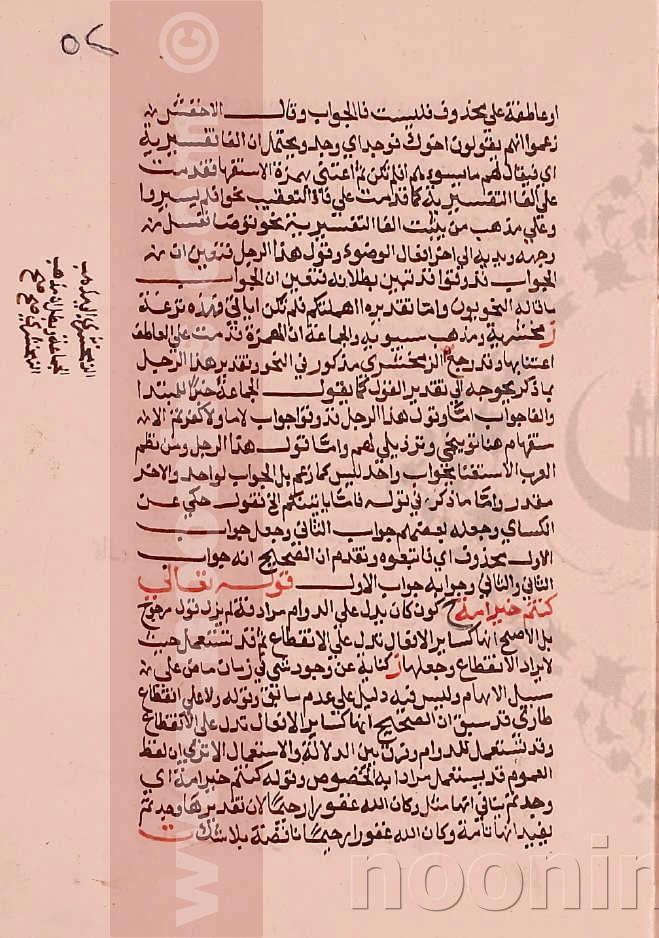 او عاطفة على محذوف فليست فالجواب وقال الاخفش
زعموا انهم يقولون اخوك فوجد اي وجد ويحتمل ان الفا تفسيرية
اي فيقال لهم ما يسوءهم الم تكن ثم اعتنى بهمزة الاستفهام تقدمت
على الفا التفسيرية كما قدمت على فا التعقيب نحو افلم يسيروا
وعلى مذهب من يثبت الفا التفسيرية نحو توضا فغسل
وجهه ويديه الى اخر افعال الوضوء وقول هذا الرجل فتعين ان
الجواب فذوقوا قد تبين بطلانه فتعين ان الجواب
ما قاله النحويون واما تقديره ااهملتكم فلم تكن اياتي فهذه نزعة
زمخشرية ومذهب سيبويه والجماعة ان الهمزة قدمت على العاطف
اعتنا بها وقد رجع الزمخشري مذكور في النحو وتقدير هذا الرجل
ما ذكر يحوجه الى تقدير القول كما يقول الجماعة خبرا للمبتدا
والفا جواب اما وقول هذا الرجل فذوقوا جواب لاما ولاكفرتم الا
ستفهام هنا توبيخي وترذيلي لهم واما قول هذا الرجل ومن نظم
العرب الاستغنا بجواب واحد ليس كما زعم بل الجواب لواحد والاخر
مقدر واما ما ذكره في قوله فاما ياتينكم الخ فقول حكي عن
الكساي وجعله بعضهم جواب الثاني وجعل جواب
الاول محذوف اي فاتبعوه وتقدم ان الصحيح انه جواب
الثاني والثاني وجوابه جواب الاول قوله تعالى
كنتم خير امة ح كون كان يدل على الدوام مرادفة لم يزل قول مرجوح
بل الاصح انها كساير الافعال تدل على الانقطاع ثم قد تستعمل حيث
لا يراد الانقطاع وجعلها ز كناية عن وجود شي في زمان ماض على
سبيل الابهام وليس فيه دليل على عدم سابق وقوله ولا على انقطاع
طاري قد سبق ان الصحيح انها كساير الافعال تدل على الانقطاع
وقد تستعمل للدوام وفرق بين الدلالة والاستعمال الا ترى ان لفظ
العموم قد يستعمل مرادا به الخصوص وقوله كنتم خير امة اي
وجدتم ينافي انها مثل وكان الله غفورا رحيما لان تقديرها وجدتم
يفيد انها تامة وكان الله غفورا رحيما ناقصة بلا شك ت
noonin